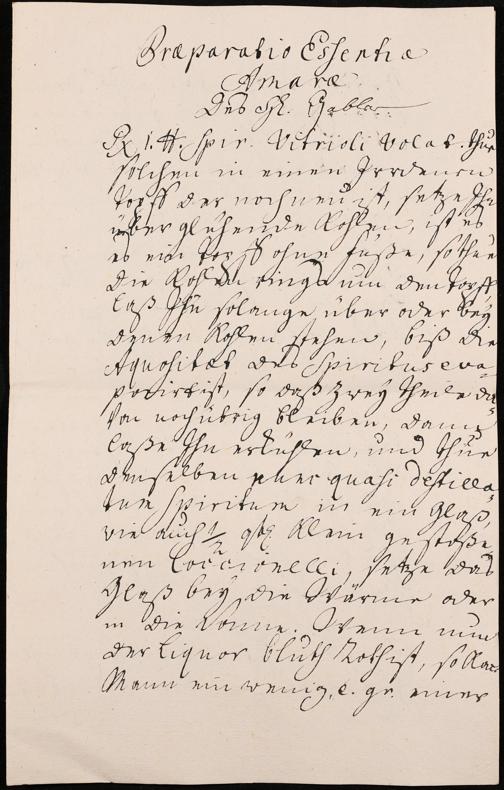 Præparatio Essentiæ
Amaræ
Des H.
Rx 1. ℔. Spir. Vitrioli Volat. thue
solchen in einen Irrdenen
Topff der noch neu ist, setze Ihn
über glühende Kohlen, ist es
es ein Topff ohne Füße, so thue
die Kohlen rings um den Topff,
laß Ihn solange über oder bey
denen Kohlen stehen, biß die
Aquositæt des Spiritus eva-
porirt ist, so daß zwey Theile da-
von noch übrig bleiben, dann
laße Ihn erkühlen, und thue
denselben quasi destilla-
tum Spiritum in ein Glaß,
wie auch 1/2 klein gestoße-
nen Coccionelli, setze das
Glaß bey die Wärme oder
in die Sonne. Wenn nun
der Liquor bluth Roth ist, so kan
Mann ein wenig, e. gr. einen